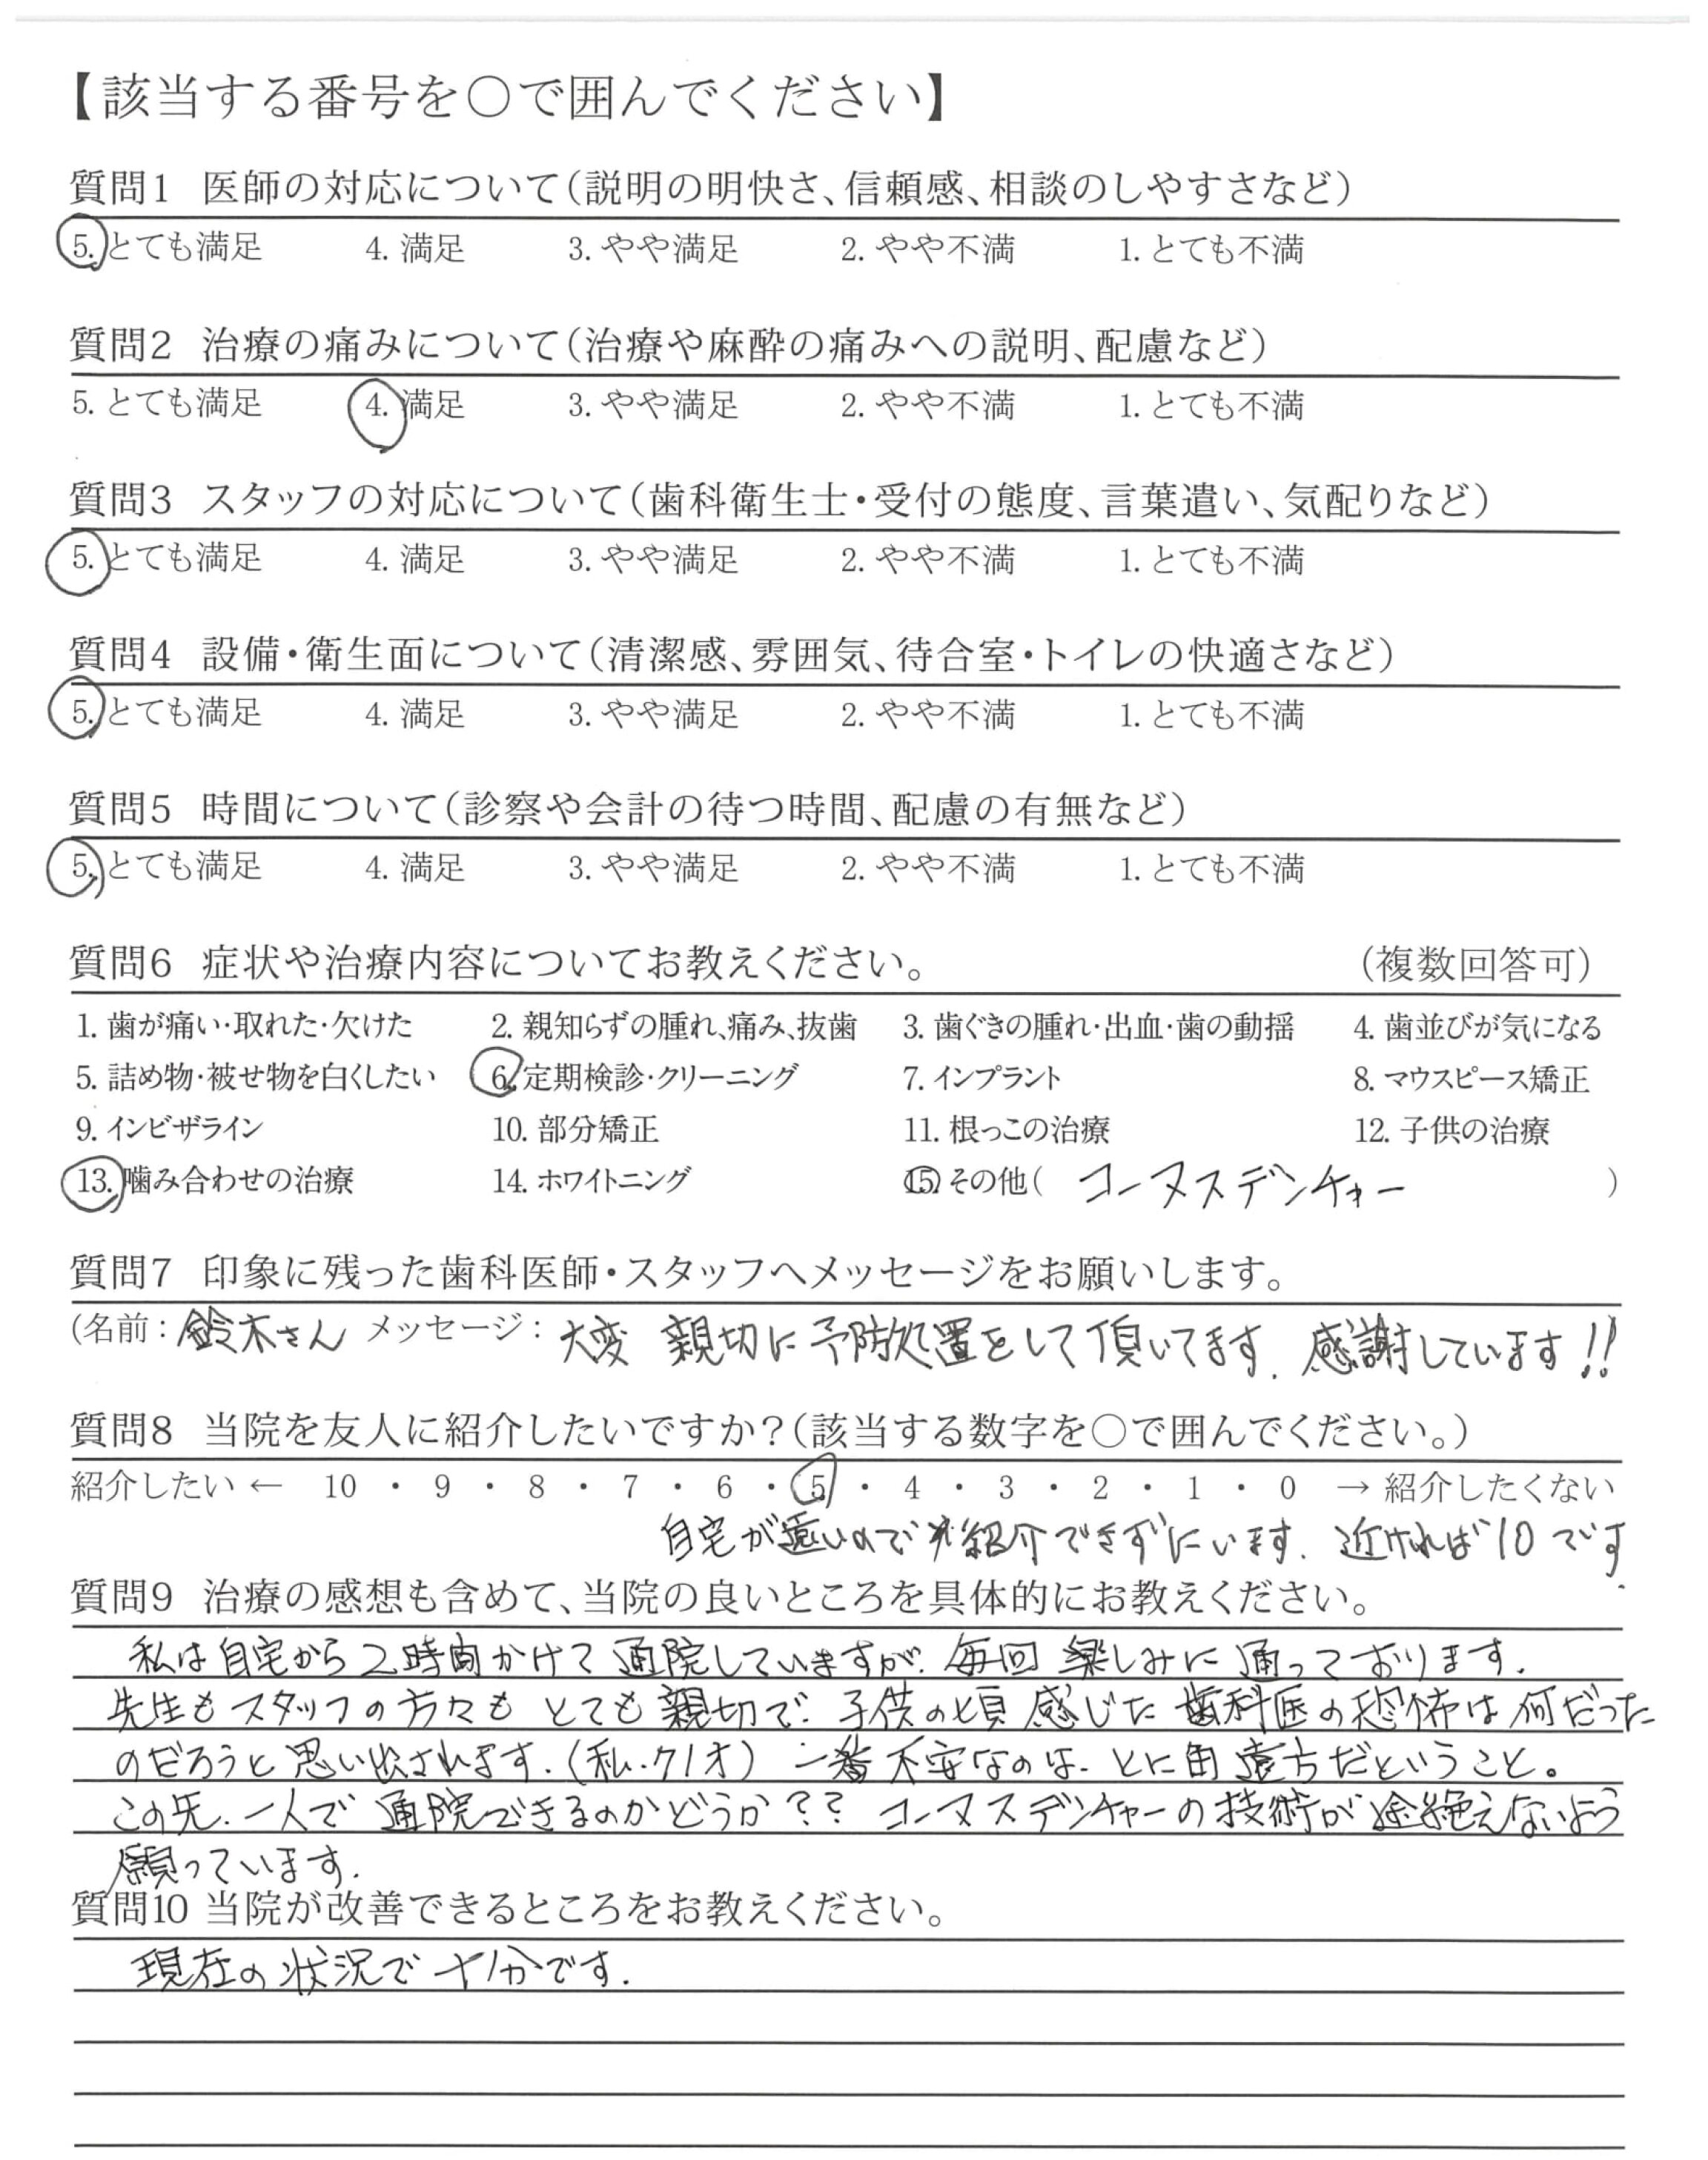 【該当する番号を○で囲んでください】
質問1 医師の対応について（説明の明快さ、信頼感、相談のしやすさなど）
5. とても満足 4. 満足 3. やや満足 2. やや不満 1. とても不満
質問2 治療の痛みについて（治療や麻酔の痛みへの説明、配慮など）
5. とても満足 4. 満足 3. やや満足 2. やや不満 1. とても不満
質問3 スタッフの対応について（歯科衛生士・受付の態度、言葉遣い、気配りなど）
5. とても満足 4. 満足 3. やや満足 2. やや不満 1. とても不満
質問4 設備・衛生面について（清潔感、雰囲気、待合室・トイレの快適さなど）
5. とても満足 4. 満足 3. やや満足 2. やや不満 1. とても不満
質問5 時間について（診察や会計の待つ時間、配慮の有無など）
5. とても満足 4. 満足 3. やや満足 2. やや不満 1. とても不満
質問6 症状や治療内容についてお教えください。 （複数回答可）
1. 歯が痛い・取れた・欠けた 2. 親知らずの腫れ、痛み、抜歯 3. 歯ぐきの腫れ・出血・歯の動揺 4. 歯並びが気になる
5. 詰め物・被せ物を白くしたい 6. 定期検診・クリーニング 7. インプラント 8. マウスピース矯正
9. インビザライン 10. 部分矯正 11. 根っこの治療 12. 子供の治療
13. 噛み合わせの治療 14. ホワイトニング 15. その他（ コーヌスデンチャー ）
質問7 印象に残った歯科医師・スタッフへメッセージをお願いします。
（名前：鈴木さん メッセージ：大変 親切に予防処置をして頂いてます. 感謝しています!!
質問8 当院を友人に紹介したいですか？（該当する数字を○で囲んでください。）
紹介したい ← 10 ・ 9 ・ 8 ・ 7 ・ 6 ・ 5 ・ 4 ・ 3 ・ 2 ・ 1 ・ 0 → 紹介したくない
自宅が遠いので紹介できずにいます. 近ければ10です.
質問9 治療の感想も含めて、当院の良いところを具体的にお教えください。
私は自宅から2時間かけて通院していますが. 毎回 楽しみに通っております.
先生もスタッフの方々も とても親切で. 子供の頃 感じた 歯科医の恐怖は何だった
のだろうと思い出されます.（私. 71才） 一番不安なのは. とに角 遠方だということ。
この先. 一人で 通院できるのかどうか？？ コーヌスデンチャーの技術が途絶えないよう
願っています.
質問10 当院が改善できるところをお教えください。
現在の状況で十分です.